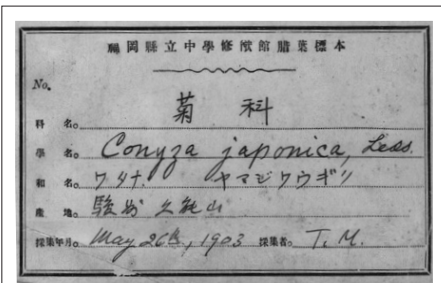 福岡縣立中學修猷館腊葉標本
No.
科名。菊科
學名。Conyza japonica, Less.
和名。ワタナ. ヤマジワウギク
產地。駿州久能山
採集年月。May 26th, 1903 採集者。T. M.